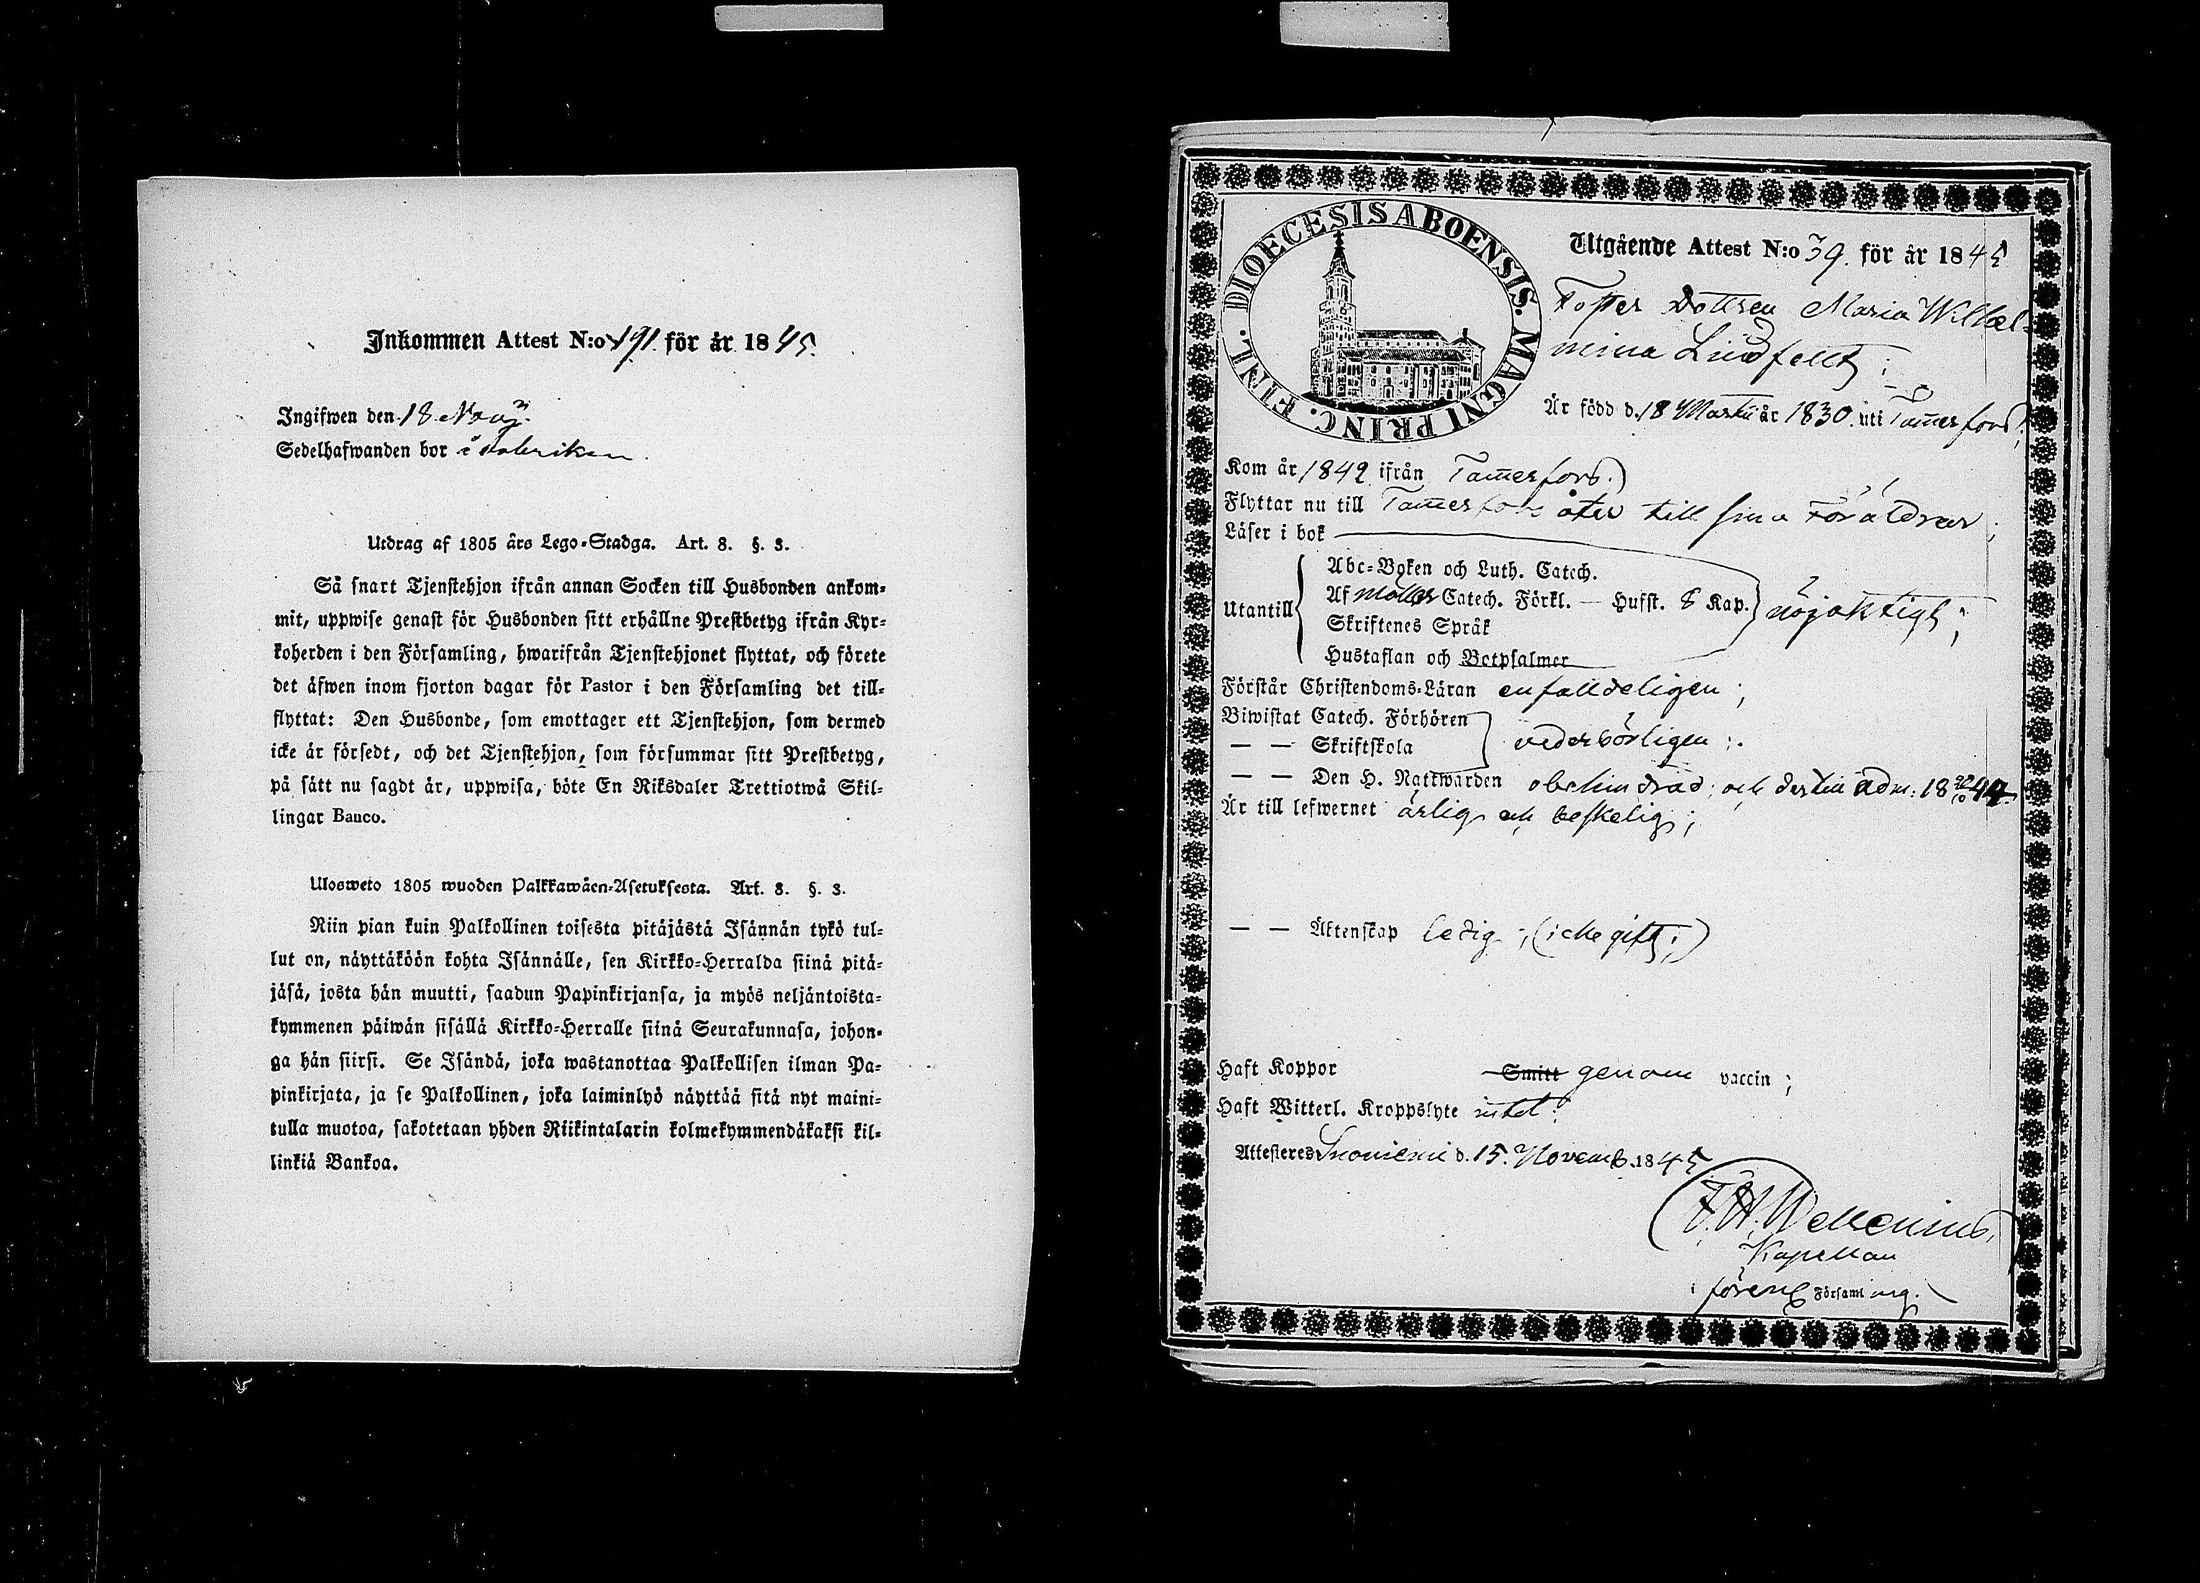 Inkommen Attest N:o 191. för år 1845.
Ingifwen den 18 Nov
Sedelhafwanden bor å Fabriken.
Utdrag af 1805 års Lego-Stadga. Art. 8. §. 3.
Så snart Tjenstehjon ifrån annan Socken till Husbonden ankom-
mit, uppwise genast för Husbonden sitt erhållne Prestbetyg ifrån Kyr-
koherden i den Församling, hwarifrån Tjenstehjonet flyttat, och förete
det äfwen inom fjorton dagar för Pastor i den Församling det till-
flyttat: Den Husbonde, som emottager ett Tjenstehjon, som dermed
icke är försedt, och det Tjenstehjon, som försummar sitt Prestbetyg,
på sätt nu sagdt är, uppwisa, böte En Riksdaler Trettiotwå Skil-
lingar Banco.
Ulosweto 1805 wuoden Palkkawäen-Asetuksesta. Art. 8. §. 3.
Niin pian kuin Palkollinen toisesta pitäjästä Isännän tykö tul-
lut on, näyttäköön kohta Isännälle, sen Kirkko-Herralda siinä pitä-
jäsä, josta hän muutti, saadun Papinkirjansa, ja myös neljäntoista-
kymmenen päiwän sisällä Kirkko-Herralle siinä Seurakunnasa, johon-
ga hän siirsi. Se Isändä, joka wastanottaa Palkollisen ilman Pa-
pinkirjata, ja se Palkollinen, joka laiminlyö näyttää sitä nyt maini-
tulla muotoa, sakotetaan yhden Riikintalarin kolmekymmendäkaksi kil-
linkiä Bankoa.
FINL. DIOECESIS ABOENSIS. MAGNI PRINC.
Utgående Attest N:o 39. för år 1845
Foster Dottren Maria Wilhel-
mina Lindfelt;
Är född d. 18 Martii år 1830. uti Tam̄erfors;
Kom år 1842 ifrån Tam̄erfors.
Flyttar nu till Tam̄erfors åter till sina Föräldrar;
Läser i bok
Utantill
Abc-Boken och Luth. Catech.
Af Möllers Catech. Förkl. — Hufst. 8 Kap.
Skriftenes Språk
Hustaflan och Botpsalmer
nöjaktigt;
Förstår Christendoms-Läran enfalldeligen;
Biwistat Catech. Förhören
— — Skriftskola
vederbörligen;
— — Den H. Nattwarden obehindrad; och dertill adm: 18 22/10 44.
Är till lefwernet ärlig och beskelig;
— — Äktenskap ledig; (icke gift;)
Haft Koppor Smitt genom vaccin;
Haft Witterl. Kroppslyte intet;
Attesteres Suoniemi d. 15. Novemb. 1845
F. H. Wellenius,
Kapellan
i föreng Församling.